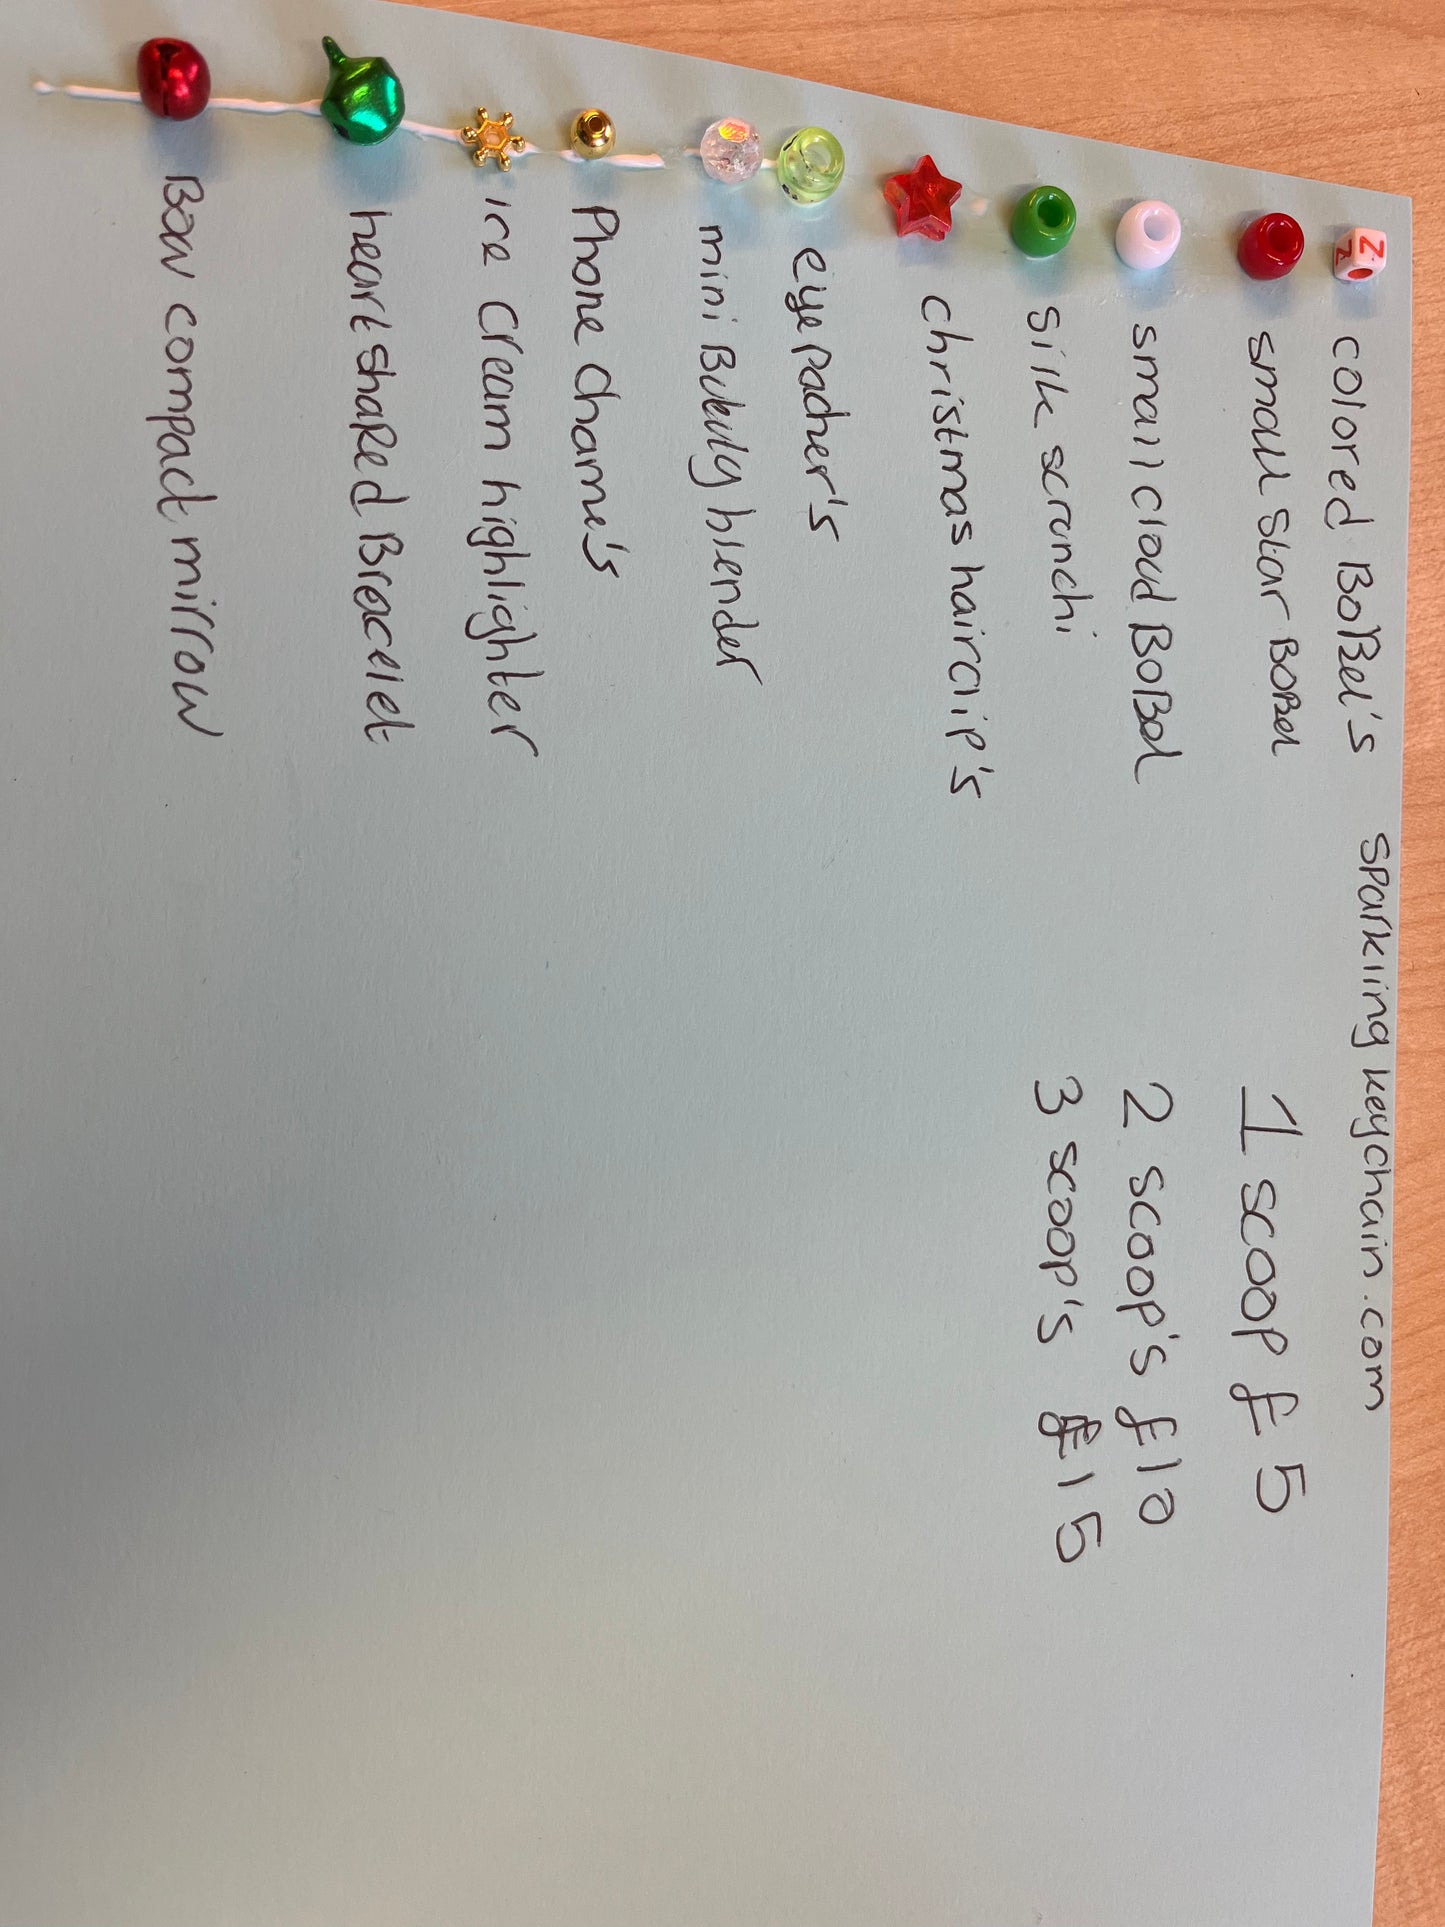 sparkling keychain.com
colored BoBBel's
small star BoBBel
small cloud BoBBel
silk scrunchi
christmas hairclip's
eye pacher's
mini Bukuty blender
Phone charme's
ice cream highlighter
heart shaped Bracelet
Bow compact mirrow
1 scoop £5
2 scoop's £10
3 scoop's £15
Z
Z